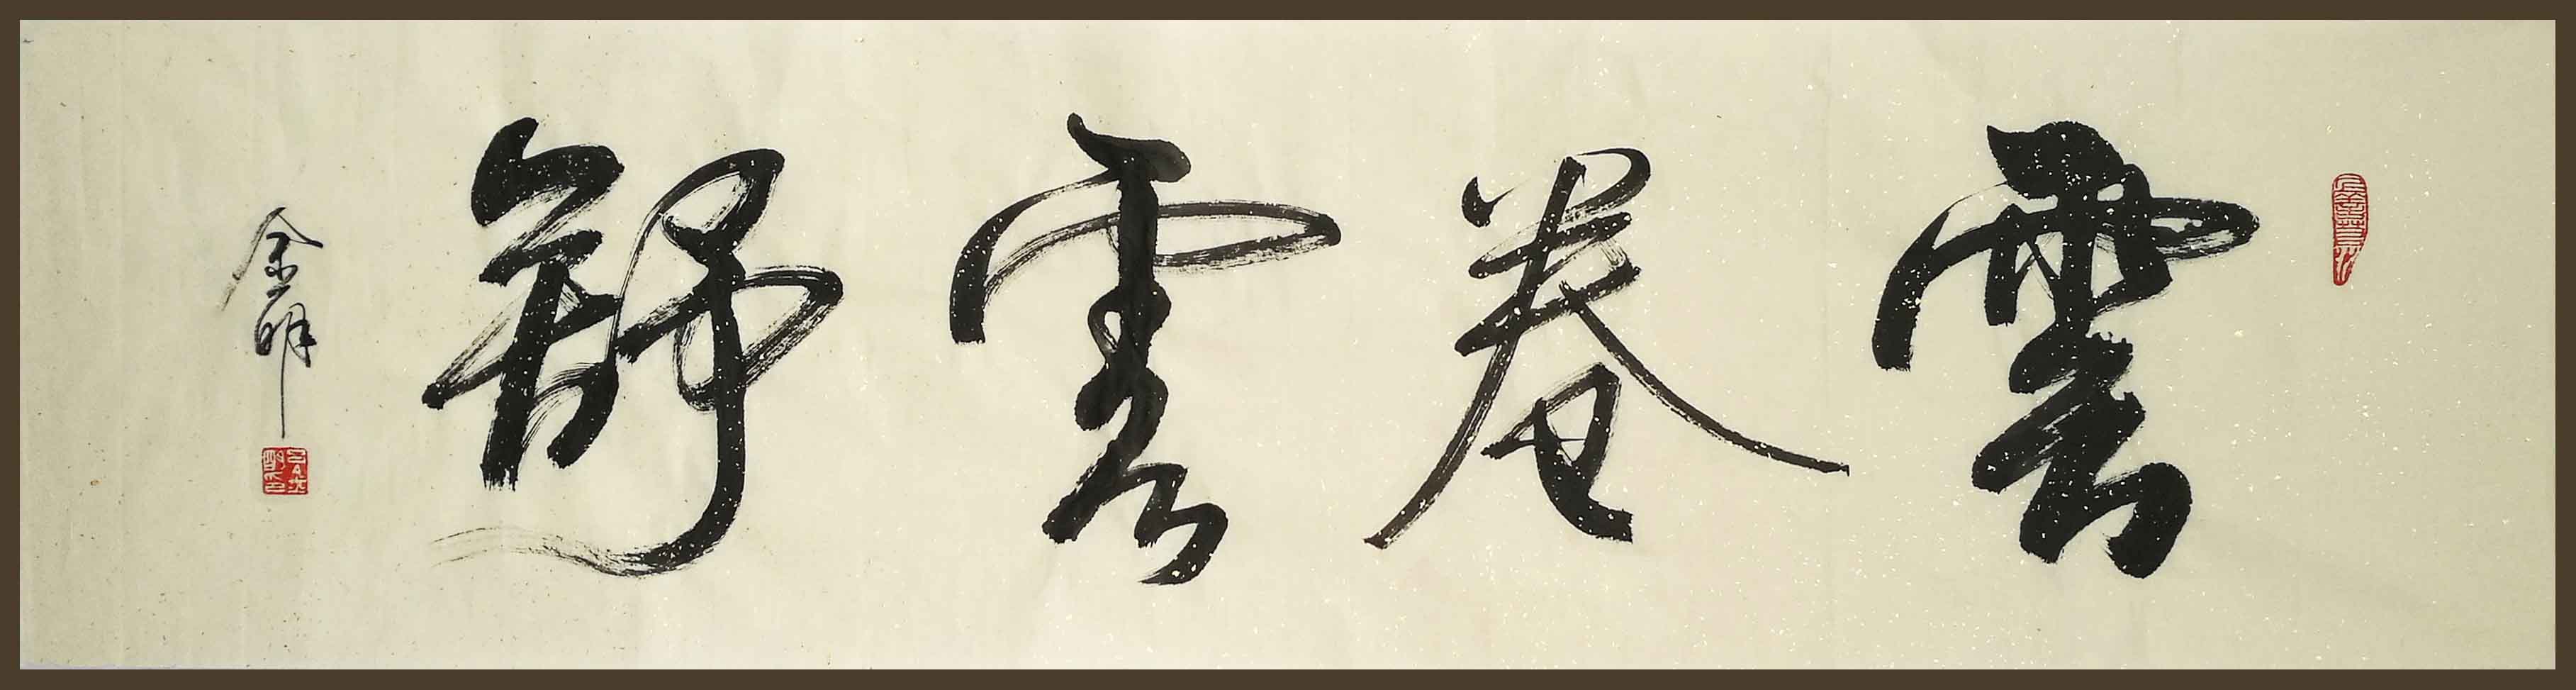 雲卷雲舒
金明